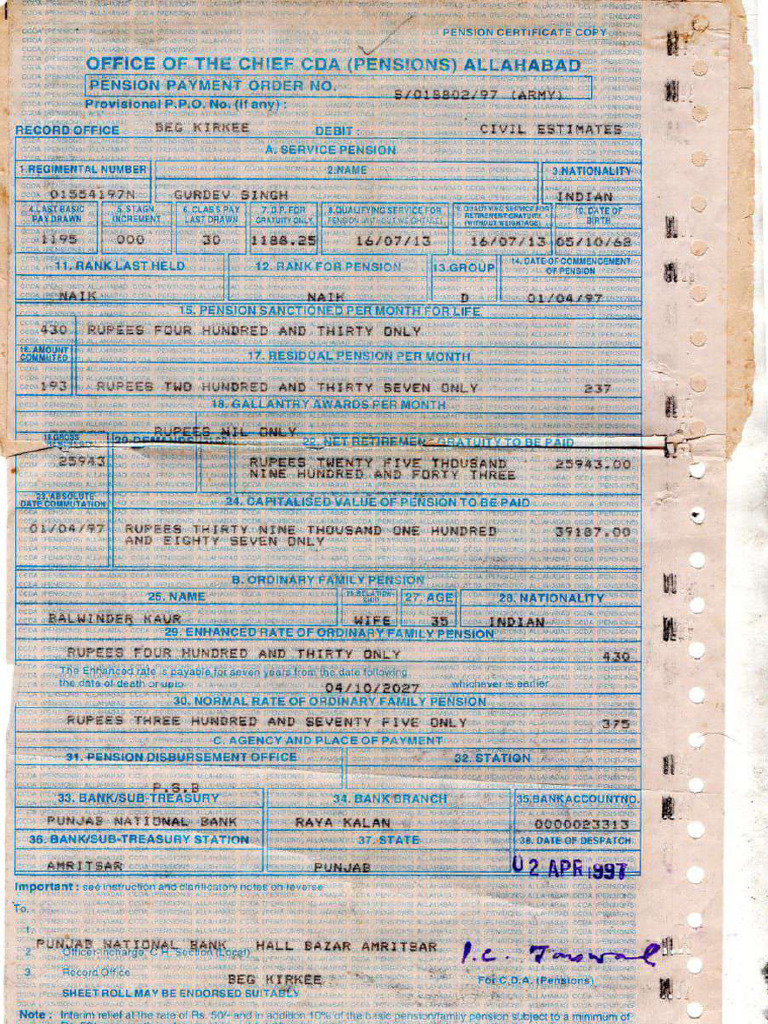 PENSION CERTIFICATE COPY
OFFICE OF THE CHIEF CDA (PENSIONS) ALLAHABAD
PENSION PAYMENT ORDER NO. S/015802/97 (ARMY)
Provisional P.P.O. No. (if any) :
RECORD OFFICE BEG KIRKEE DEBIT : CIVIL ESTIMATES
A. SERVICE PENSION
1.REGIMENTAL NUMBER 2.NAME 3.NATIONALITY
01554197N GURDEV SINGH INDIAN
4.LAST BASIC PAY DRAWN 5.STAGN INCREMENT 6.CLASS PAY LAST DRAWN 7. D.P. FOR GRATUITY ONLY 8.QUALIFYING SERVICE FOR PENSION (WITHOUT WEIGHTAGE) 9. QUALIFYING SERVICE FOR RETIREMENT GRATUITY (WITHOUT WEIGHTAGE) 10. DATE OF BIRTH
1195 000 30 1188.25 16/07/13 16/07/13 05/10/62
11. RANK LAST HELD 12. RANK FOR PENSION 13.GROUP 14. DATE OF COMMENCEMENT OF PENSION
NAIK NAIK D 01/04/97
15. PENSION SANCTIONED PER MONTH FOR LIFE
430 RUPEES FOUR HUNDRED AND THIRTY ONLY
16. AMOUNT COMMUTED 17. RESIDUAL PENSION PER MONTH
193 RUPEES TWO HUNDRED AND THIRTY SEVEN ONLY 237
18. GALLANTRY AWARDS PER MONTH
RUPEES NIL ONLY
19.GROSS 20.DEMANDS 22. NET RETIREMENT GRATUITY TO BE PAID
25943 RUPEES TWENTY FIVE THOUSAND 25943.00
NINE HUNDRED AND FORTY THREE
23. ABSOLUTE DATE COMMUTATION 24. CAPITALISED VALUE OF PENSION TO BE PAID
01/04/97 RUPEES THIRTY NINE THOUSAND ONE HUNDRED 39187.00
AND EIGHTY SEVEN ONLY
B. ORDINARY FAMILY PENSION
25. NAME 26.RELATIONSHIP 27. AGE 28. NATIONALITY
BALWINDER KAUR WIFE 35 INDIAN
29. ENHANCED RATE OF ORDINARY FAMILY PENSION
RUPEES FOUR HUNDRED AND THIRTY ONLY 430
The Enhanced rate is payable for seven years from the date following
the date of death or upto 04/10/2027 whichever is earlier
30. NORMAL RATE OF ORDINARY FAMILY PENSION
RUPEES THREE HUNDRED AND SEVENTY FIVE ONLY 375
C. AGENCY AND PLACE OF PAYMENT
31. PENSION DISBURSEMENT OFFICE 32. STATION
P.S.B
33. BANK/SUB-TREASURY 34. BANK BRANCH 35.BANK ACCOUNT NO.
PUNJAB NATIONAL BANK RAYA KALAN 0000023313
36. BANK/SUB-TREASURY STATION 37. STATE 38. DATE OF DESPATCH
AMRITSAR PUNJAB 02 APR 1997
Important : see instruction and clarificatory notes on reverse
To.
1.
PUNJAB NATIONAL BANK HALL BAZAR AMRITSAR
2 Officer-Incharge, C.H. Section (Local)
3 Record Office BEG KIRKEE For C.D.A. (Pensions)
SHEET ROLL MAY BE ENDORSED SUITABLY
Note : Interim relief at the rate of Rs. 50/- and in addition 10% of the basic pension/family pension subject to a minimum of